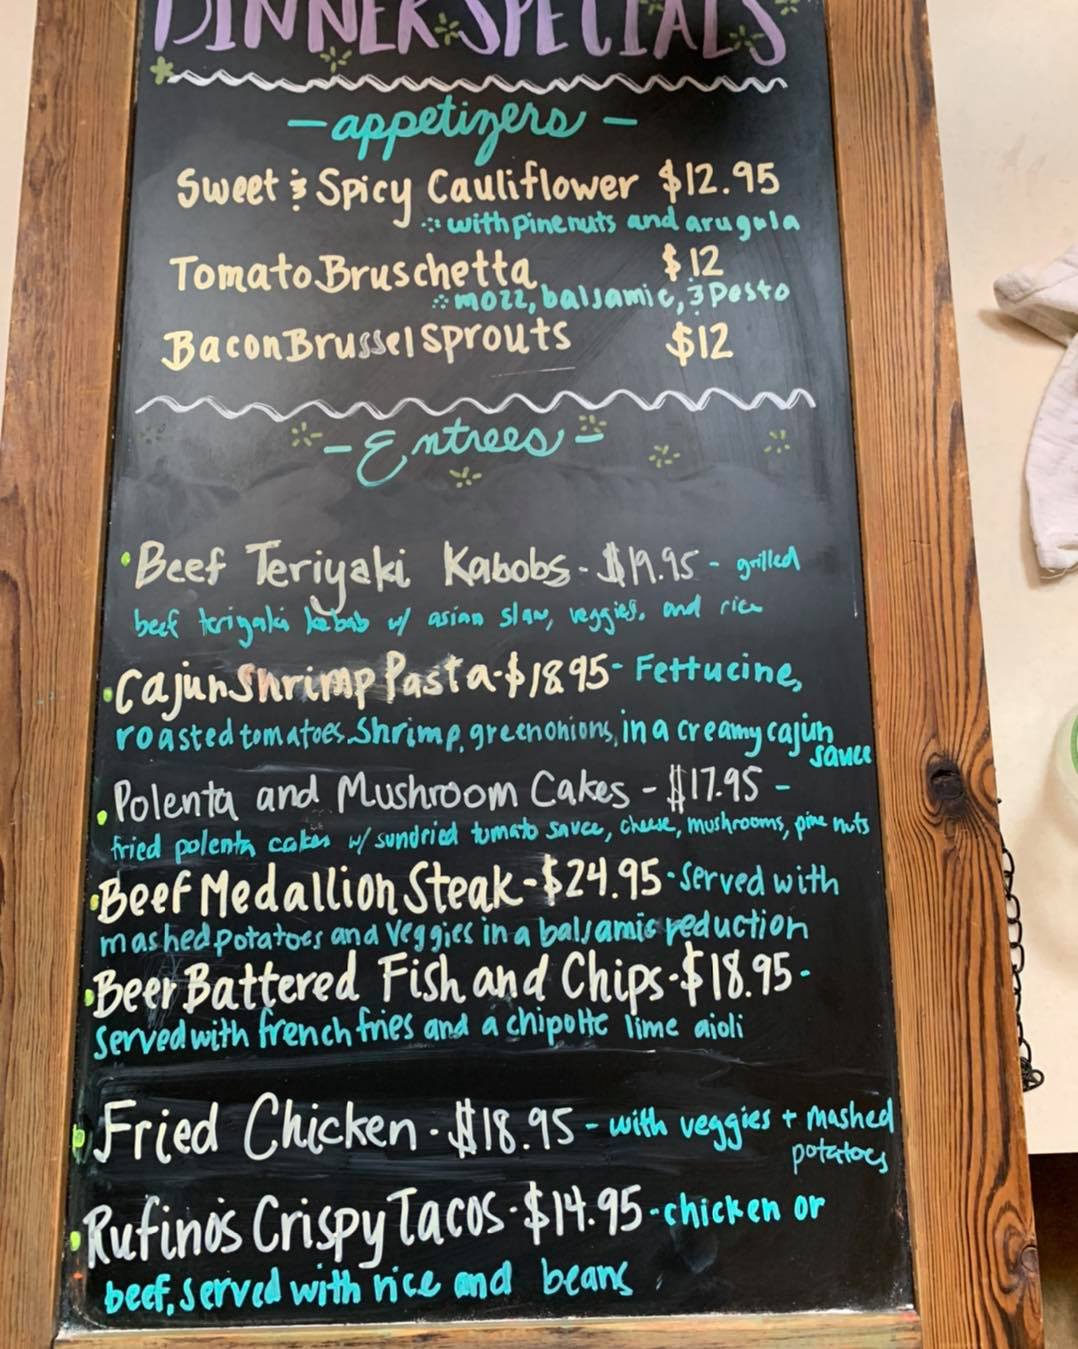 DINNER SPECIALS
- appetizers -
Sweet & Spicy Cauliflower $12.95
with pine nuts and arugula
Tomato Bruschetta $12
mozz, balsamic, & pesto
Bacon Brussel Sprouts $12
- Entrees -
Beef Teriyaki Kabobs - $19.95 - grilled
beef teriyaki kebab w/ asian slaw, veggies, and rice
Cajun Shrimp Pasta - $18.95 - Fettucine,
roasted tomatoes, Shrimp, green onions, in a creamy cajun
sauce
Polenta and Mushroom Cakes - $17.95 -
fried polenta cakes w/ sundried tomato sauce, cheese, mushrooms, pine nuts
Beef Medallion Steak - $24.95 - served with
mashed potatoes and veggies in a balsamic reduction
Beer Battered Fish and Chips - $18.95 -
served with french fries and a chipotle lime aioli
Fried Chicken - $18.95 - with veggies + mashed
potatoes
Rufino's Crispy Tacos - $14.95 - chicken or
beef, served with rice and beans